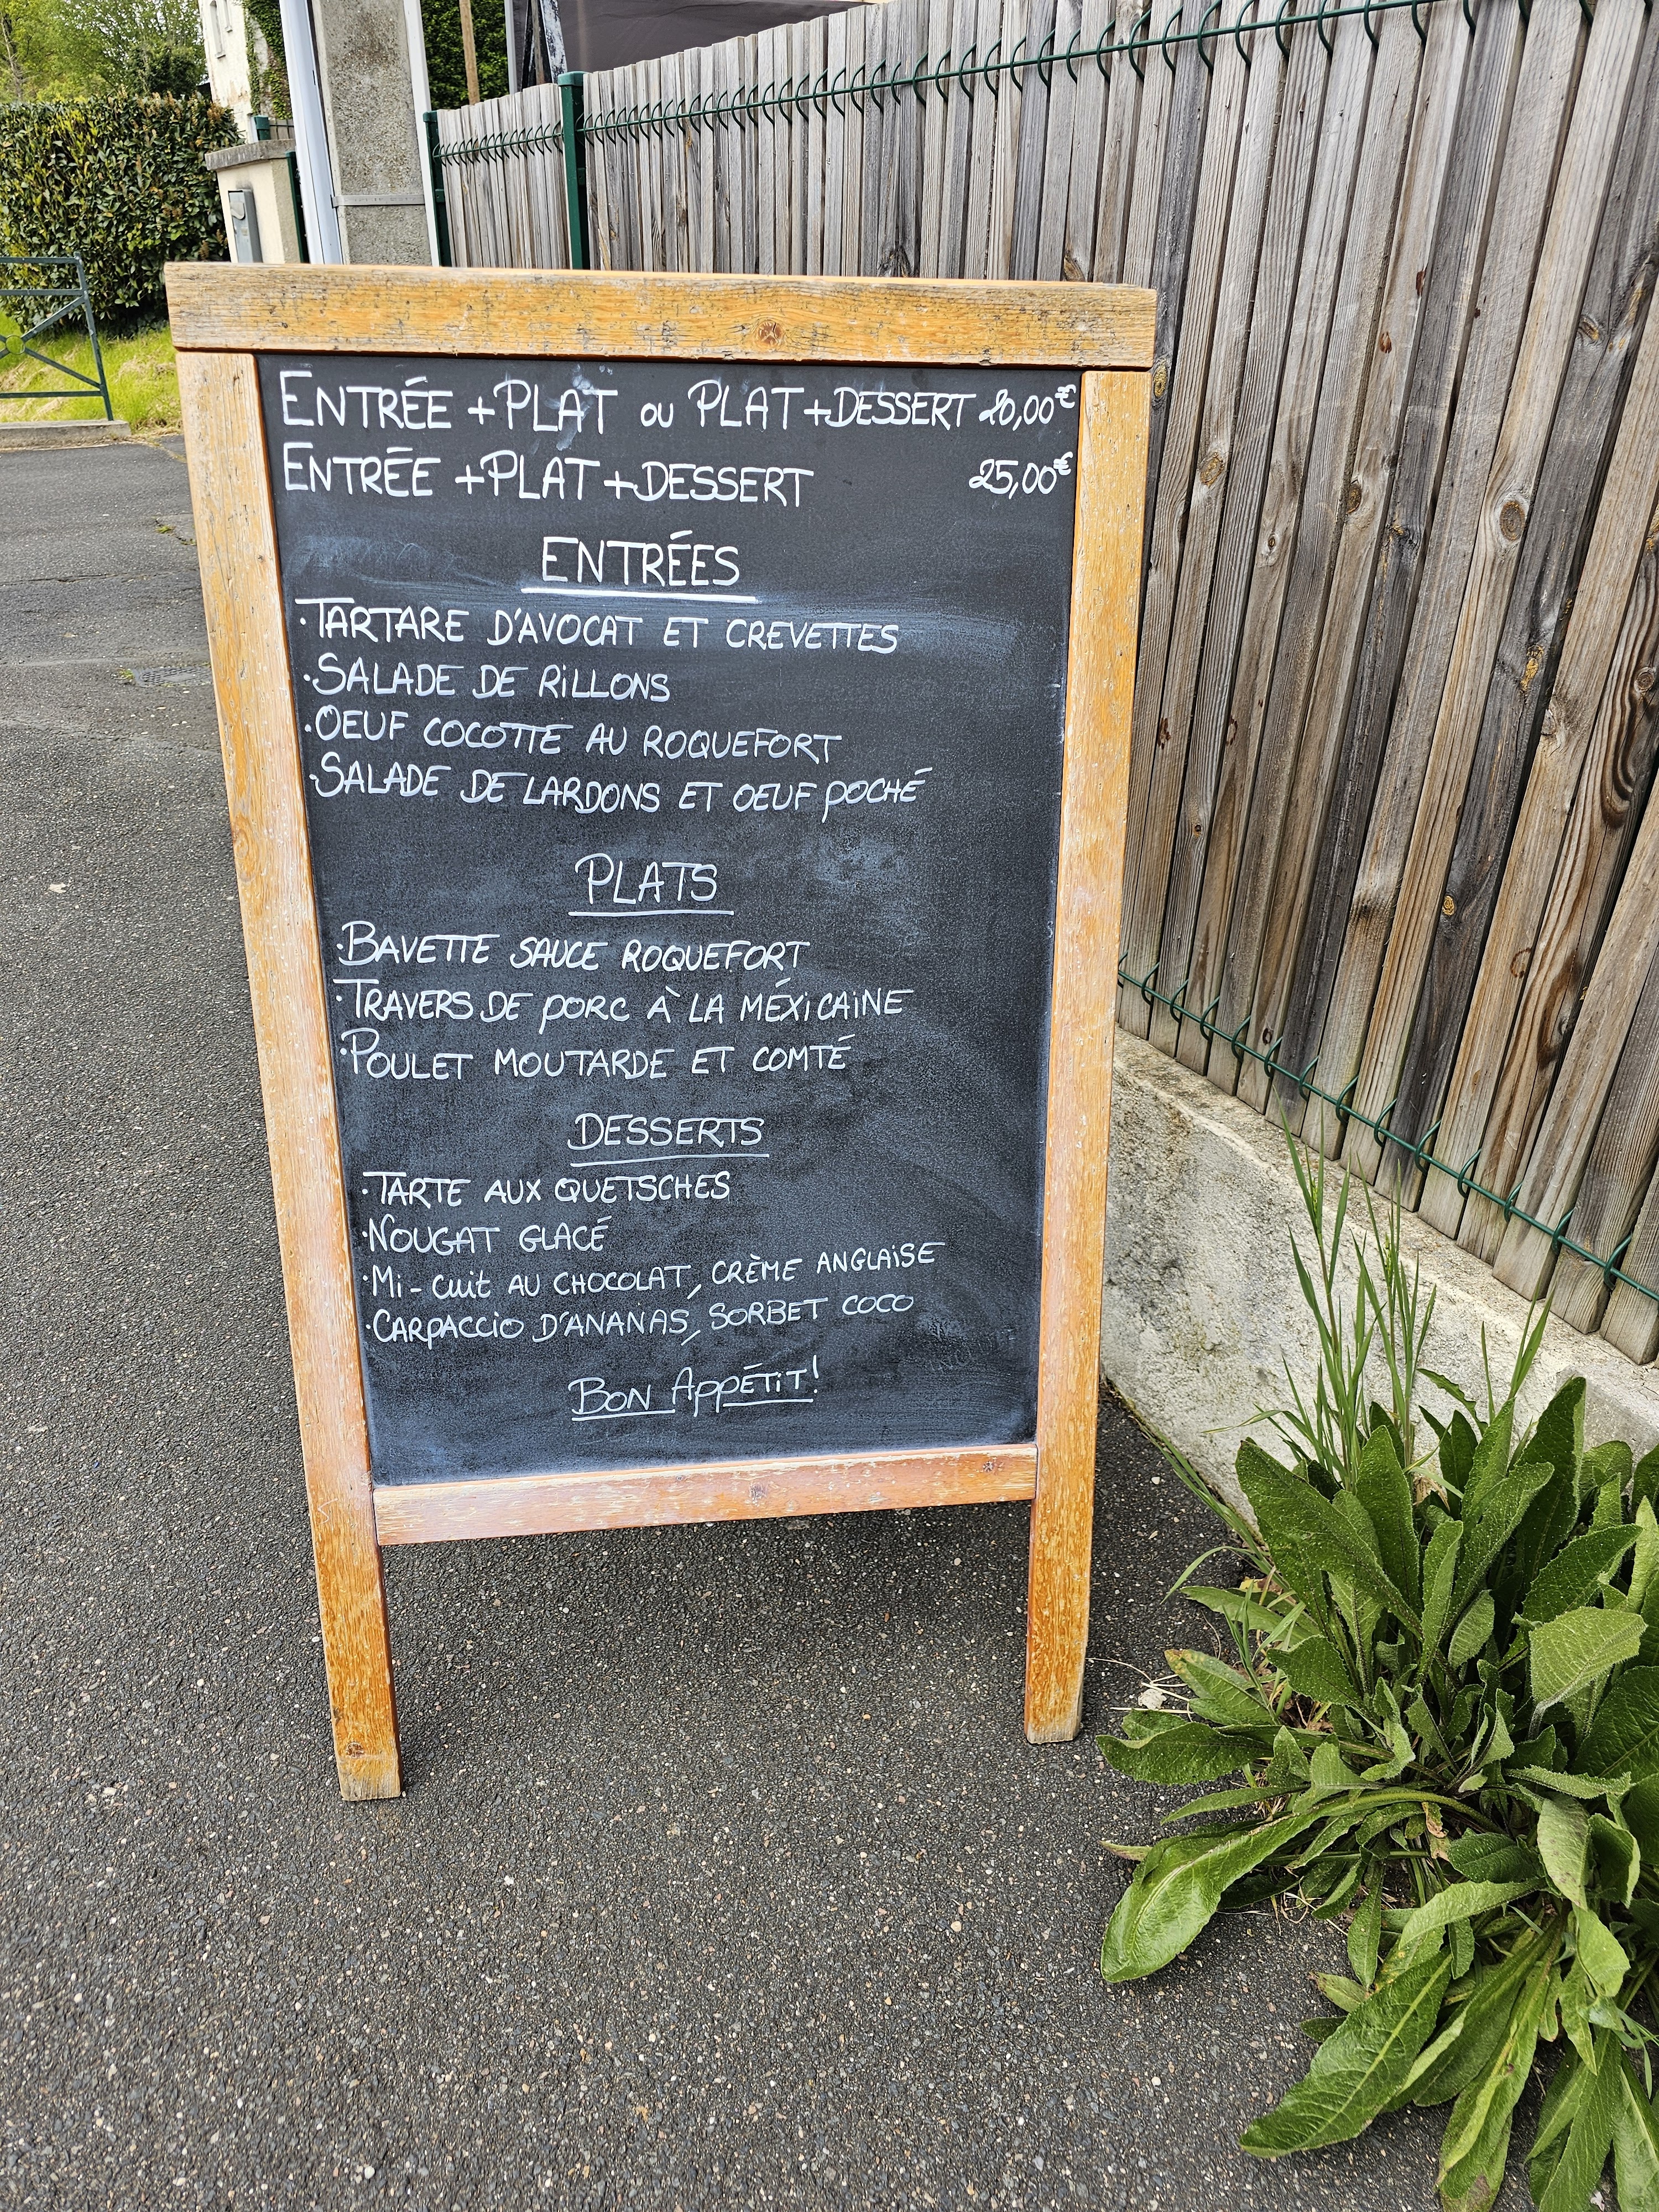 ENTRÉE + PLAT OU PLAT + DESSERT 20,00€
ENTRÉE + PLAT + DESSERT 25,00€
ENTRÉES
·TARTARE D'AVOCAT ET CREVETTES
·SALADE DE RiLLONS
·OEUF COCOTTE AU ROQUEFORT
·SALADE DE LARDONS ET OEUF POCHÉ
PLATS
·BAVETTE SAUCE ROQUEFORT
·TRAVERS DE PORC À LA MÉXiCAiNE
·POULET MOUTARDE ET COMTÉ
DESSERTS
·TARTE AUX QUETSCHES
·NOUGAT GLACÉ
·Mi-CUiT AU CHOCOLAT, CRÈME ANGLAiSE
·CARPACCiO D'ANANAS, SORBET COCO
BON APPÉTiT!